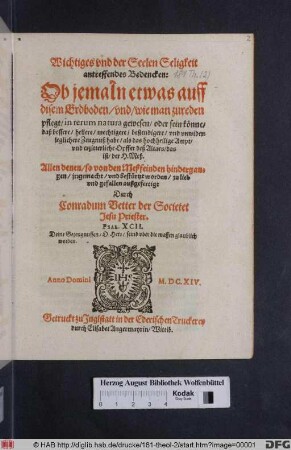 Wichtiges vnd der Seelen Seligkeit
antreffendes Bedencken:
Ob jemaln etwas auff
disem Erdboden/ vnd/ wie man zureden
pflegt/ in rerum natura gewesen/ oder sein könne/
daß bessere/ hellere/ mechtigere/ bestendigere/ vnd vnwider
leglichere Zeugnuß habe/ als das hochheilige Ampt/
vnd eigentliche Opffer deß Altars/ das
ist/ der H. Meß.
Allen denen/ so von den Meßfeinden hindergan-
gen/ vnd bestürtzt worden/ zu lieb
vnd gefallen außgefertigt
Durch
Conradum Vetter der Societet
Jesu Priester.
PSAL. XCII.
Deine Gezeugnussen/ O Herr/ seind vber die massen glaublich
worden.
IHS
Anno Domini M. DC. XIV.
Getruckt zu Ingolstatt in der Ederischen Truckerey
durch Elisabet Angermayrin/ Wittib.
Herzog August Bibliothek Wolfenbüttel
Kodak
© HAB http://diglib.hab.de/drucke/181-theol-2/start.htm?image=00001
DFG